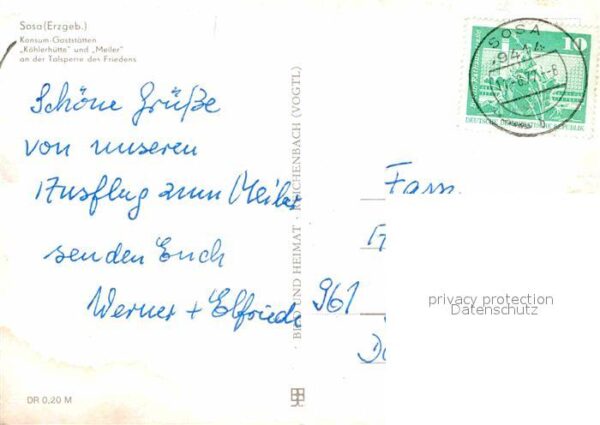 Sosa (Erzgeb.)
Konsum-Gaststätten
„Köhlerhütte" und „Meiler"
an der Talsperre des Friedens
Schöne Grüße
von unseren
Ausflug zum Meiler
senden Euch
Werner + Elfriede
DR 0,20 M
BILD UND HEIMAT · REICHENBACH (VOGTL)
SOSA
9414
10
DEUTSCHE DEMOKRATISCHE REPUBLIK
Fam.
961
privacy protection
Datenschutz